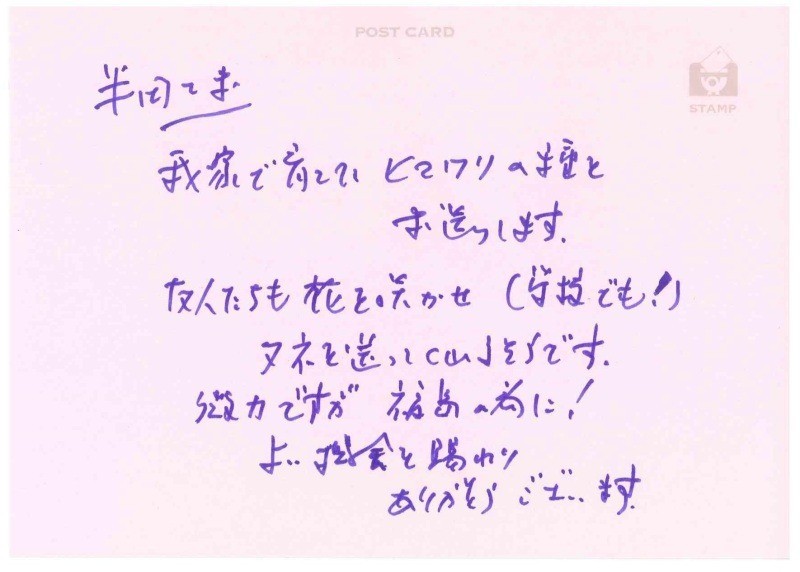 POST CARD
STAMP
半田さま
我家で育てた ヒマワリの種を
お送りします。
友人たちも 花を咲かせ (学校でも!)
タネを送ってくれるそうです。
微力ですが 福島の為に!
よい機会を賜わり
ありがとう ございます。